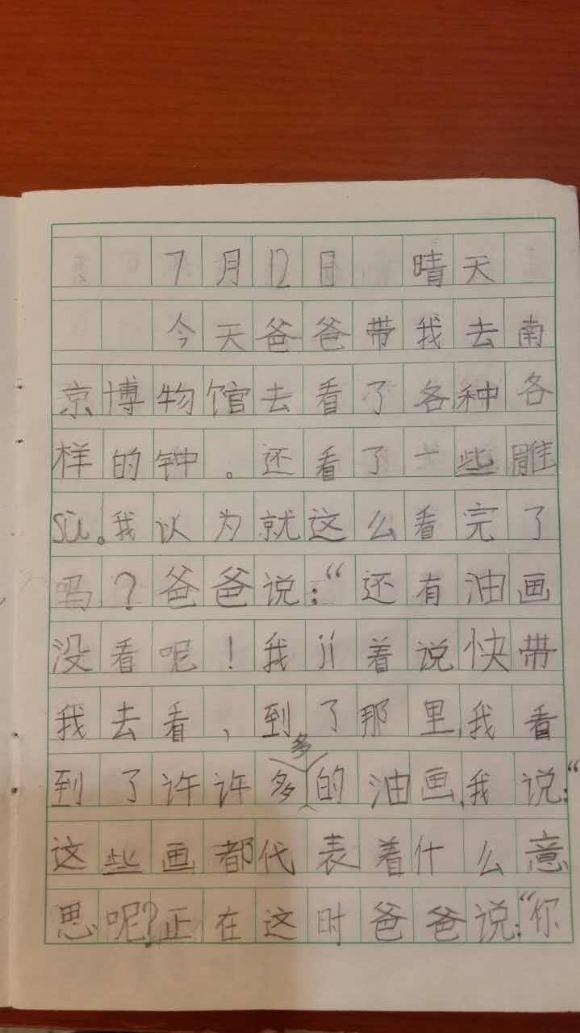 7月12日 晴天
今天爸爸带我去南
京博物馆去看了各种各
样的钟。还看了一些雕
sù。我以为就这么看完了
吗?爸爸说:“还有油画
没看呢!我jí着说快带
我去看,到了那里,我看
到了许许多多的油画,我说:“
这些画都代表着什么意
思呢?正在这时爸爸说:“你